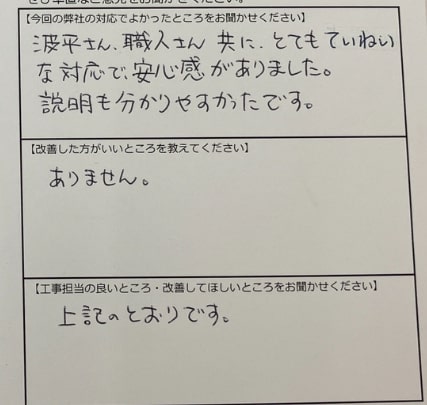 ぜひ率直なご意見をお聞かせください。
【今回の弊社の対応でよかったところをお聞かせください】
波平さん、職人さん 共に、とてもていねい
な対応で、安心感がありました。
説明も分かりやすかったです。
【改善した方がいいところを教えてください】
ありません。
【工事担当の良いところ・改善してほしいところをお聞かせください】
上記のとおりです。